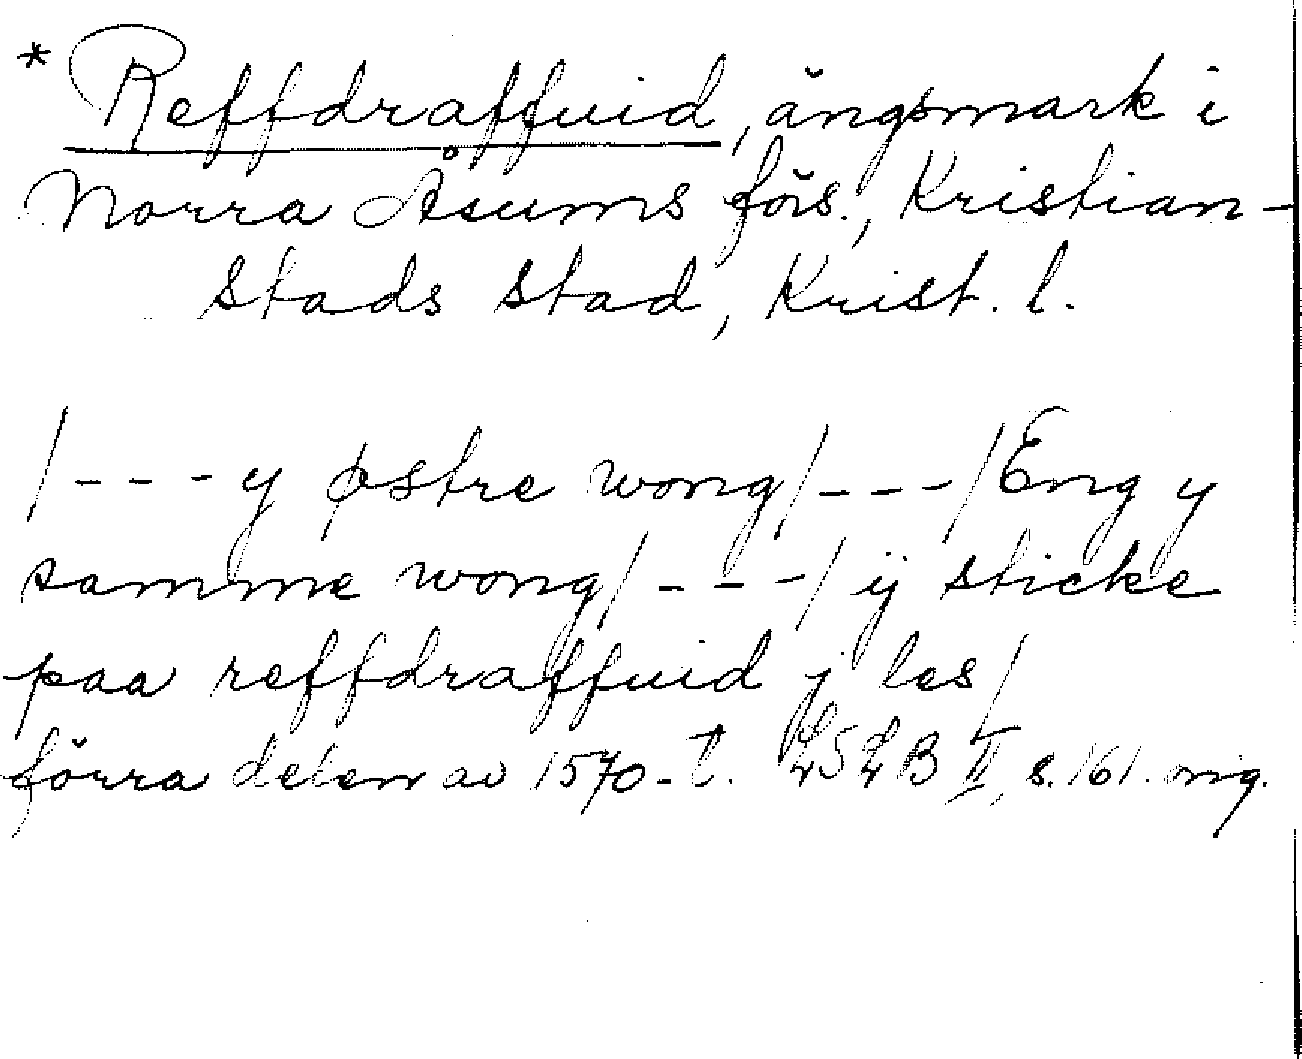 * Reffdraffuid, ängsmark i
Norra Åsums förs., Kristian-
stads stad, Krist. l.
/---y østre wong/---/Eng y
samme wong/---/ ij sticke
paa reffdraffuid j les/
förra delen av 1570-t. LSLB II, s. 161. orig.